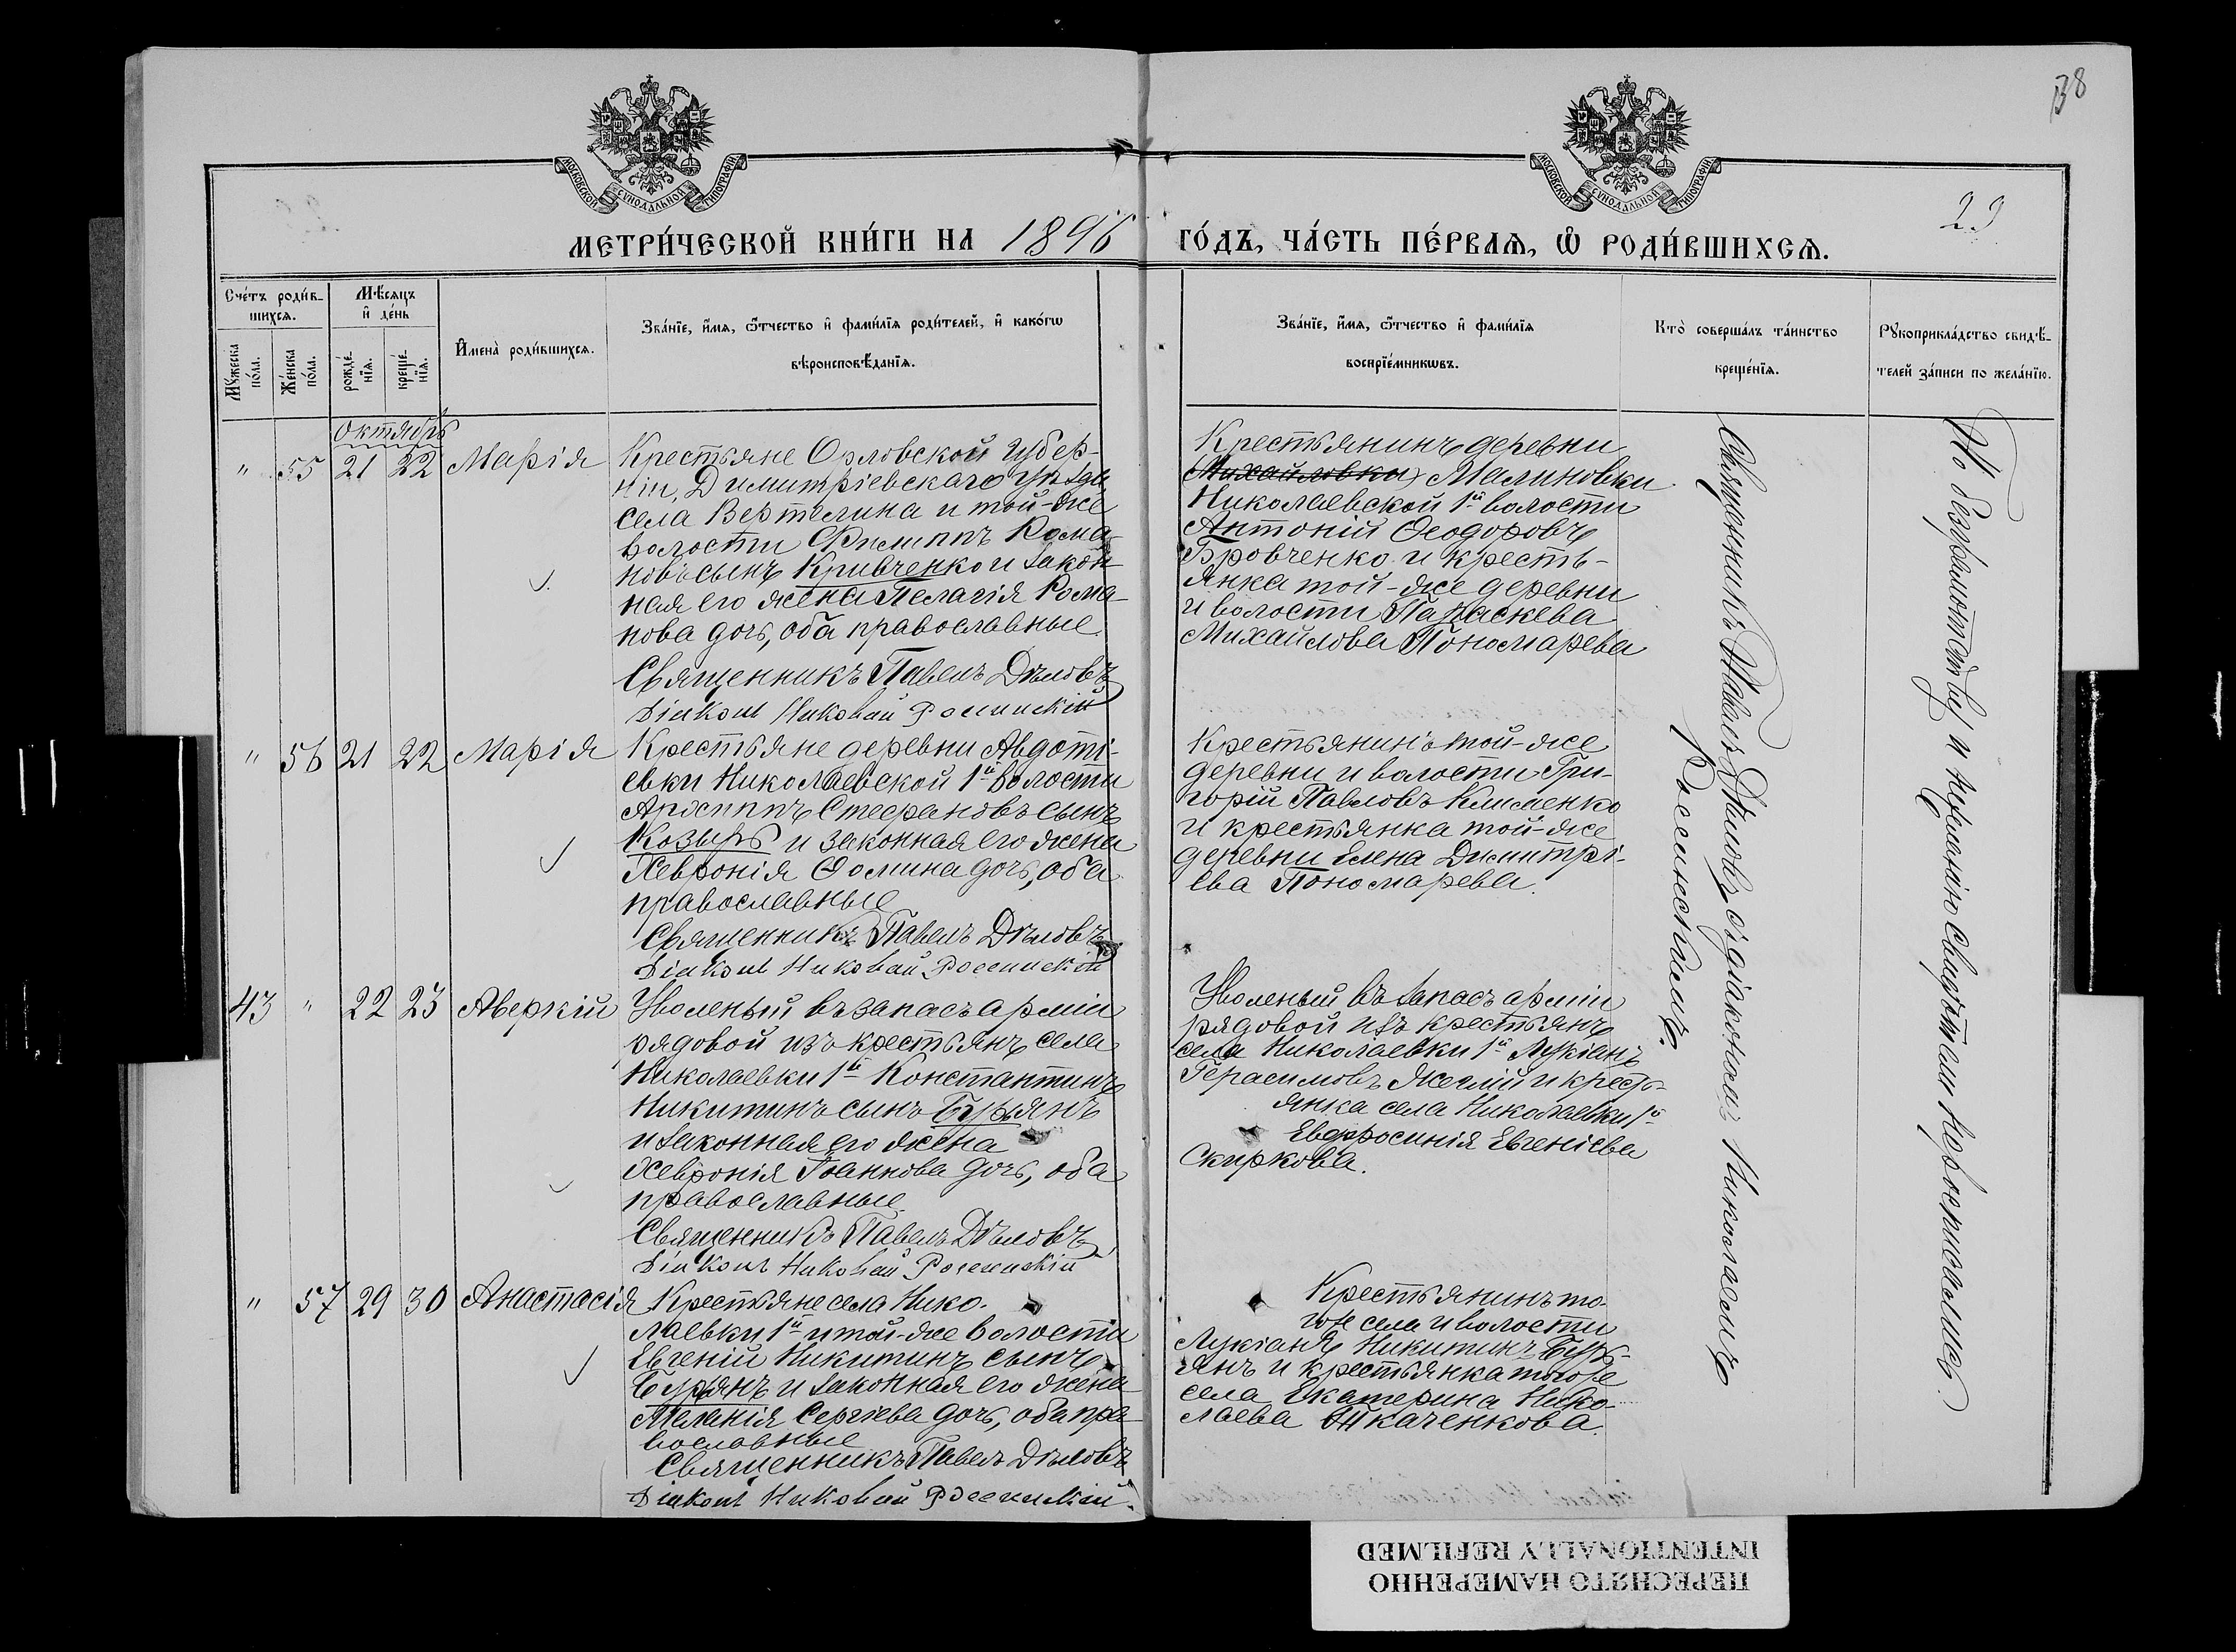 38
МОСКОВСКОЙ СѴНОДАЛЬНОЙ ТИПОГРАФІИ
МОСКОВСКОЙ СѴНОДАЛЬНОЙ ТИПОГРАФІИ
23
МЕТРИ́ЧЕСКОЙ КНИ́ГИ НА 1896 ГО́ДЪ, ЧА́СТЬ ПЕ́РВАѦ, Ѡ РОДИ́ВШИХСѦ.
Сче́тъ роди́в-
шихсѧ.
Мꙋ́жеска по́ла.
Же́нска по́ла.
Мѣ́сѧцъ и де́нь
рожде́-нїѧ.
креще́-нїѧ.
И҆мена̀ роди́вшихсѧ.
Зва́нїе, и҆́мѧ, ѻ҆́тчество и҆ фами́лїѧ роди́телей, и҆ како́гѡ
вѣроисповѣ́данїѧ.
Зва́нїе, и҆́мѧ, ѻ҆́тчество и҆ фами́лїѧ
воспрїе́мникѡвъ.
Кто̀ соверша́лъ та́инство
креще́нїѧ.
Рꙋкоприкла́дство свидѣ́-
телей за́писи по жела́нїю.
Октябрь
" 55 21 22 Марія
Крестьяне Орловской губер-
ніи, Димитріевскаго уѣзда
села Вертелина и той-же
волости Филиппъ Рома-
новъ сынъ Кривченко и закон-
ная его жена Пелагія Рома-
нова дочь, оба православные
Священникъ Павелъ Дѣловъ
Діаконъ Николай Россинскій
Крестьянинъ деревни
Михайловки Малиновки
Николаевской 1й волости
Антоній Ѳеодоровъ
Бровченко и кресть-
янка той-же деревни
и волости Параскева
Михайлова Пономарева
" 56 21 22 Марія
Крестьяне деревни Авдоті-
евки Николаевской 1й волости
Архиппъ Стефановъ сынъ
Козырь и законная его жена
Хевронія Ѳомина дочь, оба
православные
Священникъ Павелъ Дѣловъ
Діаконъ Николай Россинскій
Крестьянинъ той-же
деревни и волости Гри-
горій Павловъ Клименко
и крестьянка той-же
деревни Елена Димитрі-
ева Пономарева.
43 " 22 23 Аверкій
Уволеный въ запасъ арміи
рядовой изъ крестьянъ села
Николаевки 1й Константинъ
Никитинъ сынъ Бурьянъ
и законная его жена
Хевронія Іоаннова дочь, оба
православные
Священникъ Павелъ Дѣловъ
Діаконъ Николай Россинскій
Уволеный въ запасъ арміи
рядовой изъ крестьянъ
села Николаевки 1й Лукіанъ
Герасимовъ и кресть-
янка села Николаевки 1й
Евфросинія Евгеніева
Скиркова.
" 57 29 30 Анастасія
Крестьяне села Нико-
лаевки 1й и той-же волости
Евгеній Никитинъ сынъ
Бурьянъ и законная его жена
Меланія Сергіева дочь, оба пра-
вославные
Священникъ Павелъ Дѣловъ
Діаконъ Николай Россинскій
Крестьянинъ то-
го-же села и волости
Лукіанъ Никитинъ Бурь-
янъ и крестьянка того-же
села Екатерина Нико-
лаева Ткаченкова.
Священникъ Павелъ Дѣловъ съ діакономъ Николаемъ
Россинскимъ.
По безграмотству и нежеланію свидѣтелями не росписались.
ПЕРЕСНЯТО НАМЕРЕННО
INTENTIONALLY REFILMED